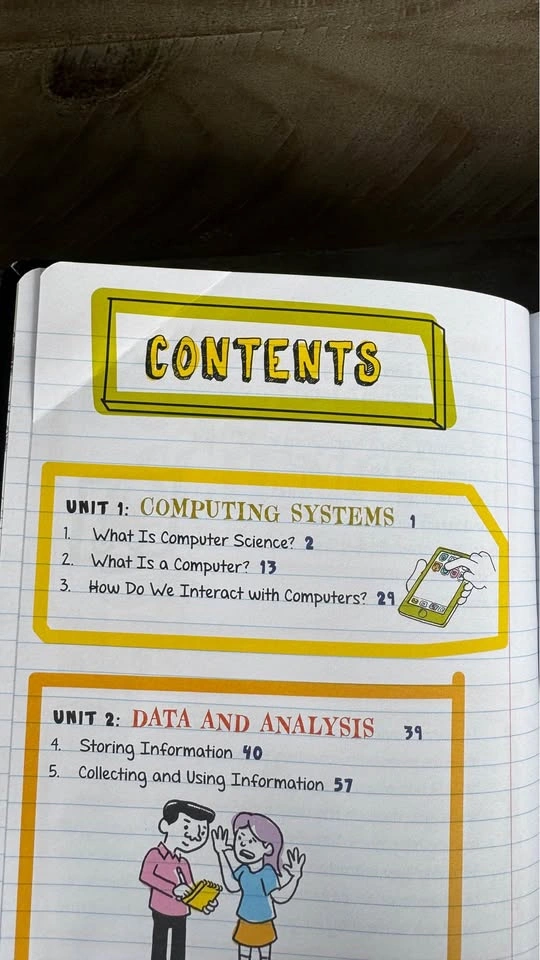 CONTENTS
UNIT 1: COMPUTING SYSTEMS 1
1. What Is Computer Science? 2
2. What Is a Computer? 13
3. How Do We Interact with Computers? 29
UNIT 2: DATA AND ANALYSIS 39
4. Storing Information 40
5. Collecting and Using Information 57